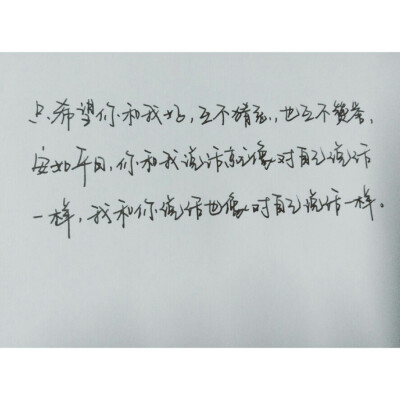 只希望你和我好，互不猜忌，也互不赞誉，
安如平日，你和我说话就像对自己说话
一样，我和你说话也像对自己说话一样。